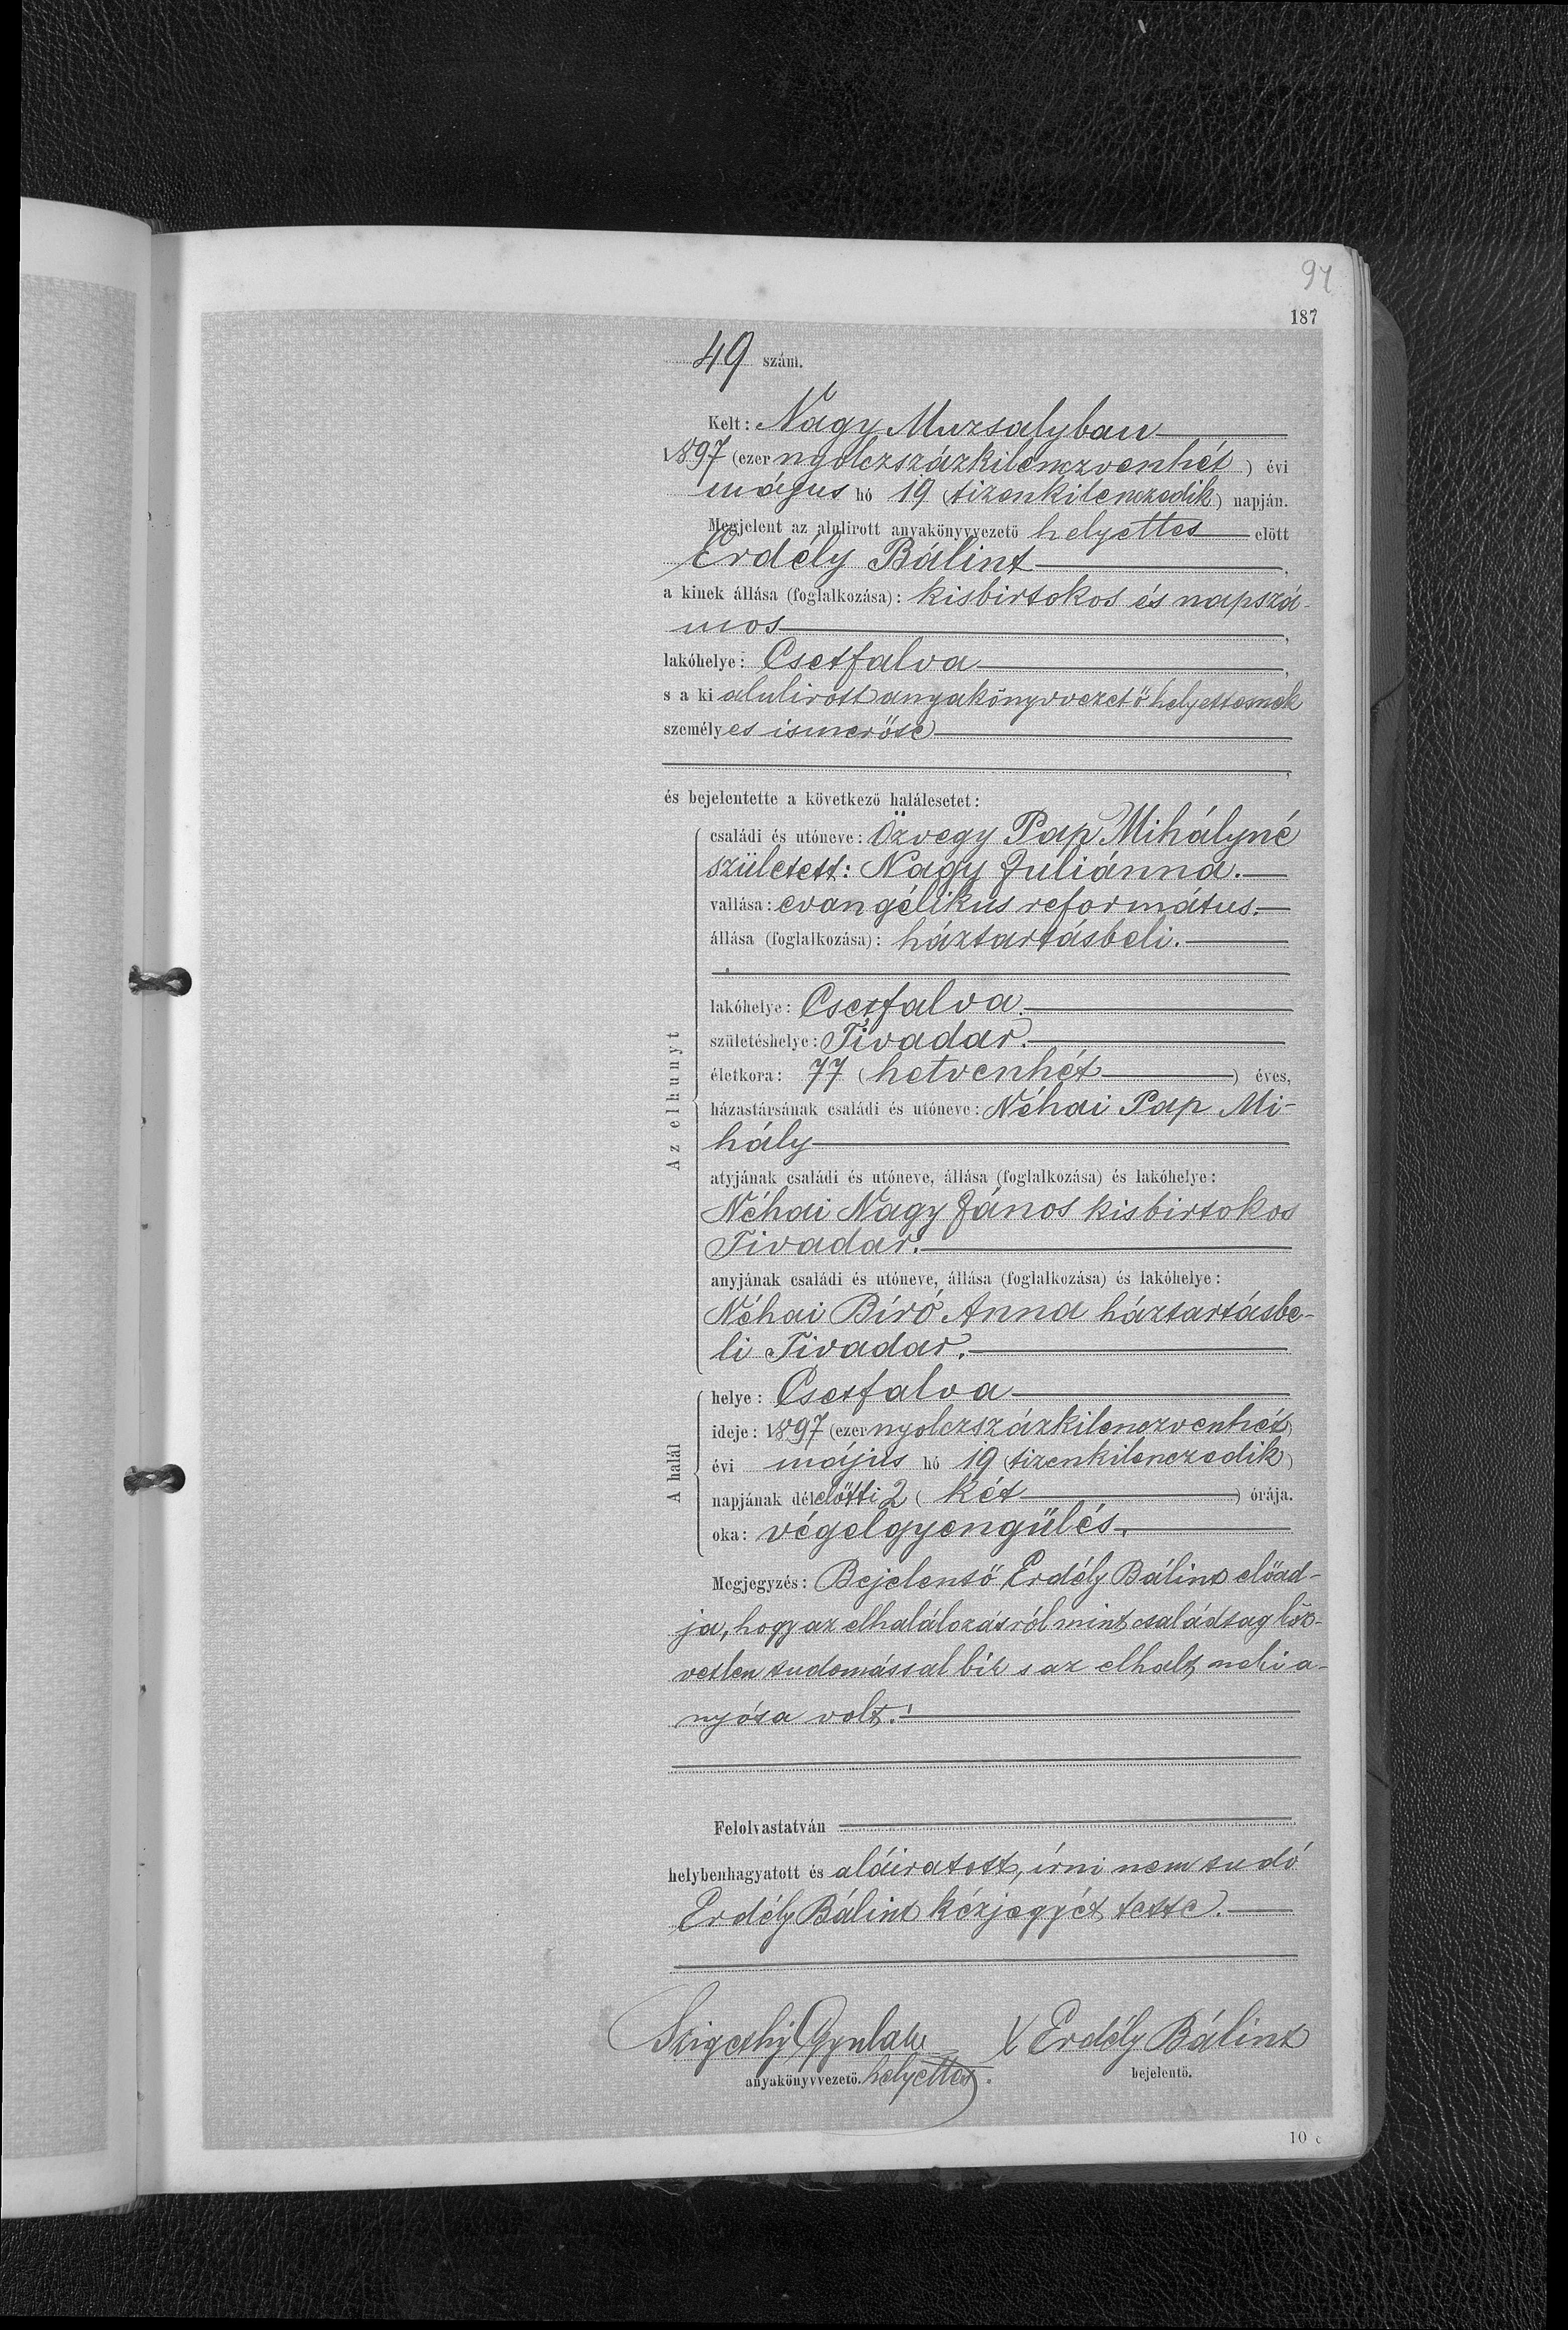 94
187
49 szám.
Kelt: Nagy Muzsalyban
1897 (ezer nyolczszázkilenczvenhét) évi
május hó 19 (tizenkilenczedik) napján.
Megjelent az alulirott anyakönyvvezető helyettes előtt
Erdély Bálint,
a kinek állása (foglalkozása): kisbirtokos és napszá-
mos,
lakóhelye: Csetfalva,
s a ki alulirott anyakönyvvezető helyettesnek
személyes ismerőse
,
és bejelentette a következő halálesetet:
Az elhunyt
családi és utóneve: Özvegy Pap Mihályné
született: Nagy Juliánna.
vallása: evangélikus református.
állása (foglalkozása): háztartásbeli.
lakóhelye: Csetfalva.
születéshelye: Tivadar.
életkora: 77 (hetvenhét) éves,
házastársának családi és utóneve: Néhai Pap Mi-
hály
atyjának családi és utóneve, állása (foglalkozása) és lakóhelye:
Néhai Nagy János kisbirtokos
Tivadar.
anyjának családi és utóneve, állása (foglalkozása) és lakóhelye:
Néhai Bíró Anna háztartásbe-
li Tivadar.
A halál
helye: Csetfalva
ideje: 1897 (ezer nyolczszázkilenczvenhét)
évi május hó 19 (tizenkilenczedik)
napjának délelőtti 2 (két) órája.
oka: végelgyengülés.
Megjegyzés: Bejelentő Erdély Bálint előad-
ja, hogy az elhalálozásról mint családtag köz-
vetlen tudomással bír s az elhalt neki a-
nyósa volt.
Felolvastatván
helybenhagyatott és aláiratott, írni nem tudó
Erdély Bálint kézjegyét tette.
Szigethy Gyula
anyakönyvvezető. helyettes.
X Erdély Bálint
bejelentő.
10 c